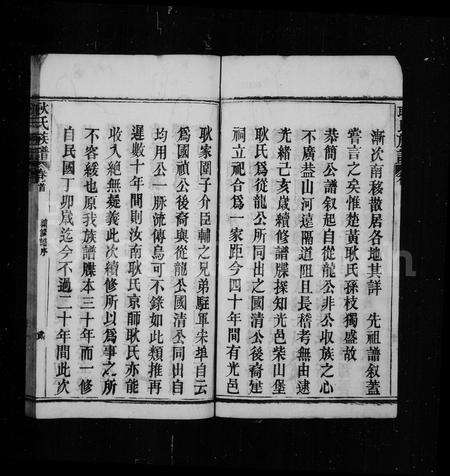 漸次南移散居各地其詳 先祖譜敘蓋
嘗言之矣惟楚黃耿氏孫枝獨盛故
恭簡公譜敘起自從龍公非公取族之心
不廣益山河遠隔道阻且長稽考無由逮
光緒己亥歲續修譜牒探知光邑柴山堡
耿氏爲從龍公所同出之國清公後裔建
祠立祀合爲一家距今四十年間有光邑
耿家園子介臣輔之兄弟駐軍宋埠自云
爲國禎公後裔與從龍公國清丞同出自
均用公一脈流傳烏可不錄如此類推再
遲數十年間則汝南耿氏京師耿氏亦能
收入絕無疑義此次續修所以爲事之所
不容緩也原我族譜牒本三十年而一修
自民國丁卯歲迄今不過二十年間此次
耿氏族譜 卷首